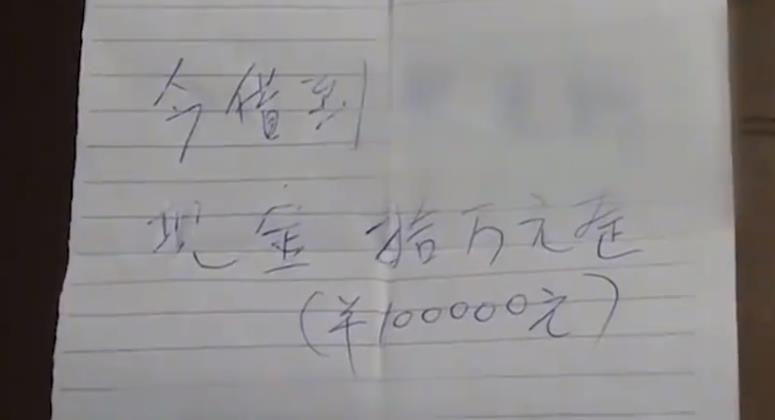 今借到
现金 拾万元正
(¥100000元)